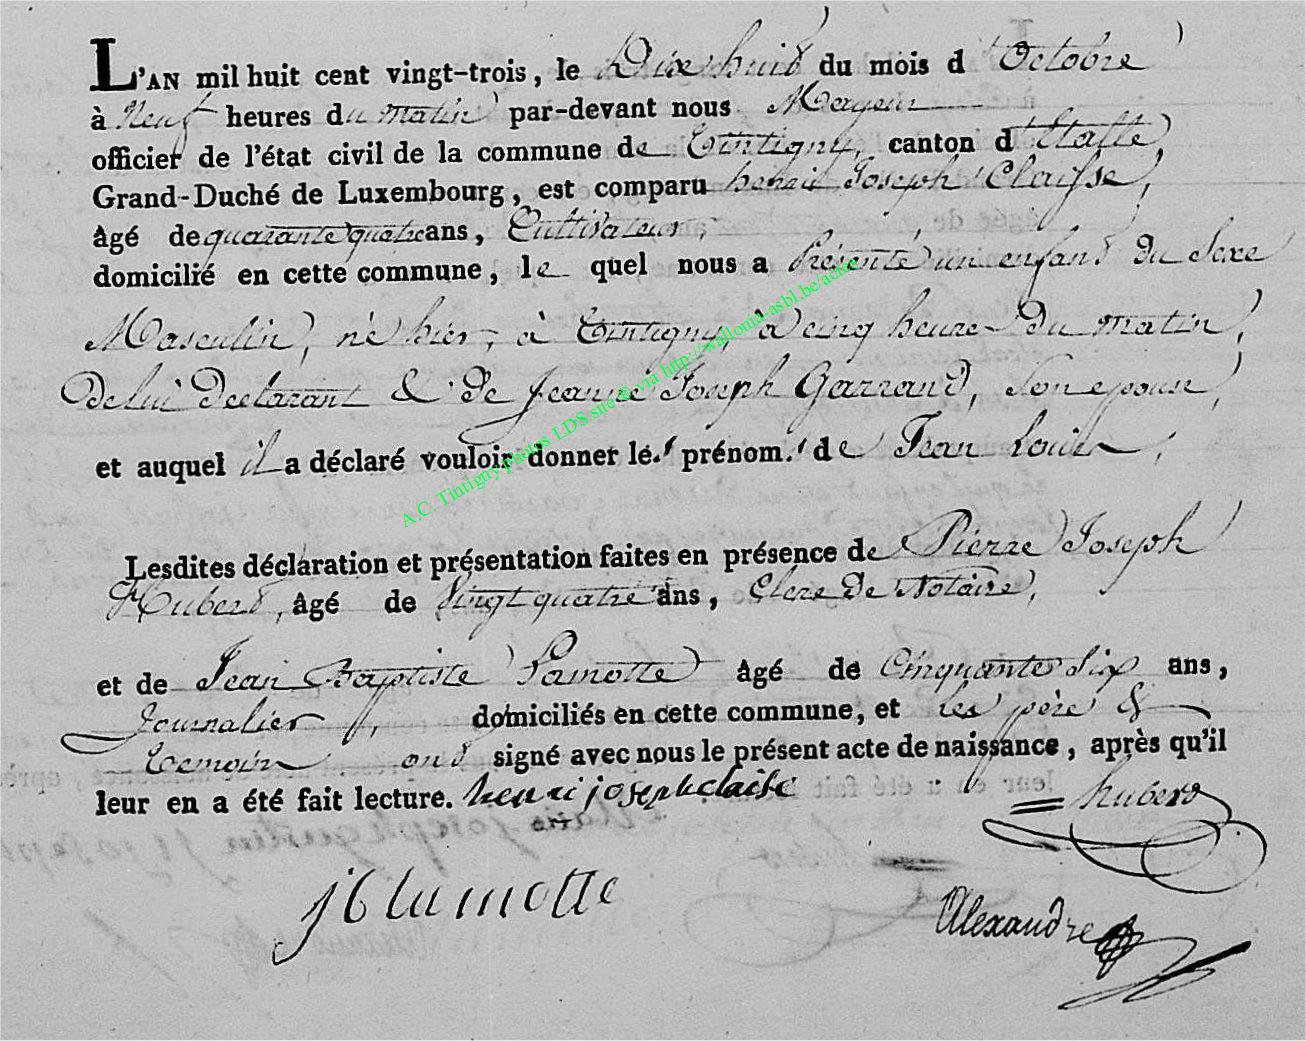 L'AN mil huit cent vingt-trois, le Dix huit du mois d'Octobre
à Neuf heures du matin par-devant nous Mayeur
officier de l'état civil de la commune de Tintigny, canton d'Etalle,
Grand-Duché de Luxembourg, est comparu henri Joseph Claisse,
âgé de quarante quatre ans, Cultivateur,
domicilié en cette commune, le quel nous a Présenté un enfant Du Sexe
Masculin, né hier, à Tintigny, à cinq heures Du matin,
De lui Declarant & De Jeanne Joseph Garrand, son epouse,
et auquel il a déclaré vouloir donner les prénoms de Jean Louis,
A.C. Tintigny photos LDS site & via http://wallonia-asbl.be/actes
Lesdites déclaration et présentation faites en présence de Pierre Joseph
Hubert, âgé de Vingt quatre ans, Clerc De Notaire,
et de Jean Baptiste Lamotte âgé de Cinquante Six ans,
Journalier, domiciliés en cette commune, et les père &
Temoins ont signé avec nous le présent acte de naissance, après qu'il
leur en a été fait lecture. henri joseph claise
hubert
j b lamotte
Alexandre